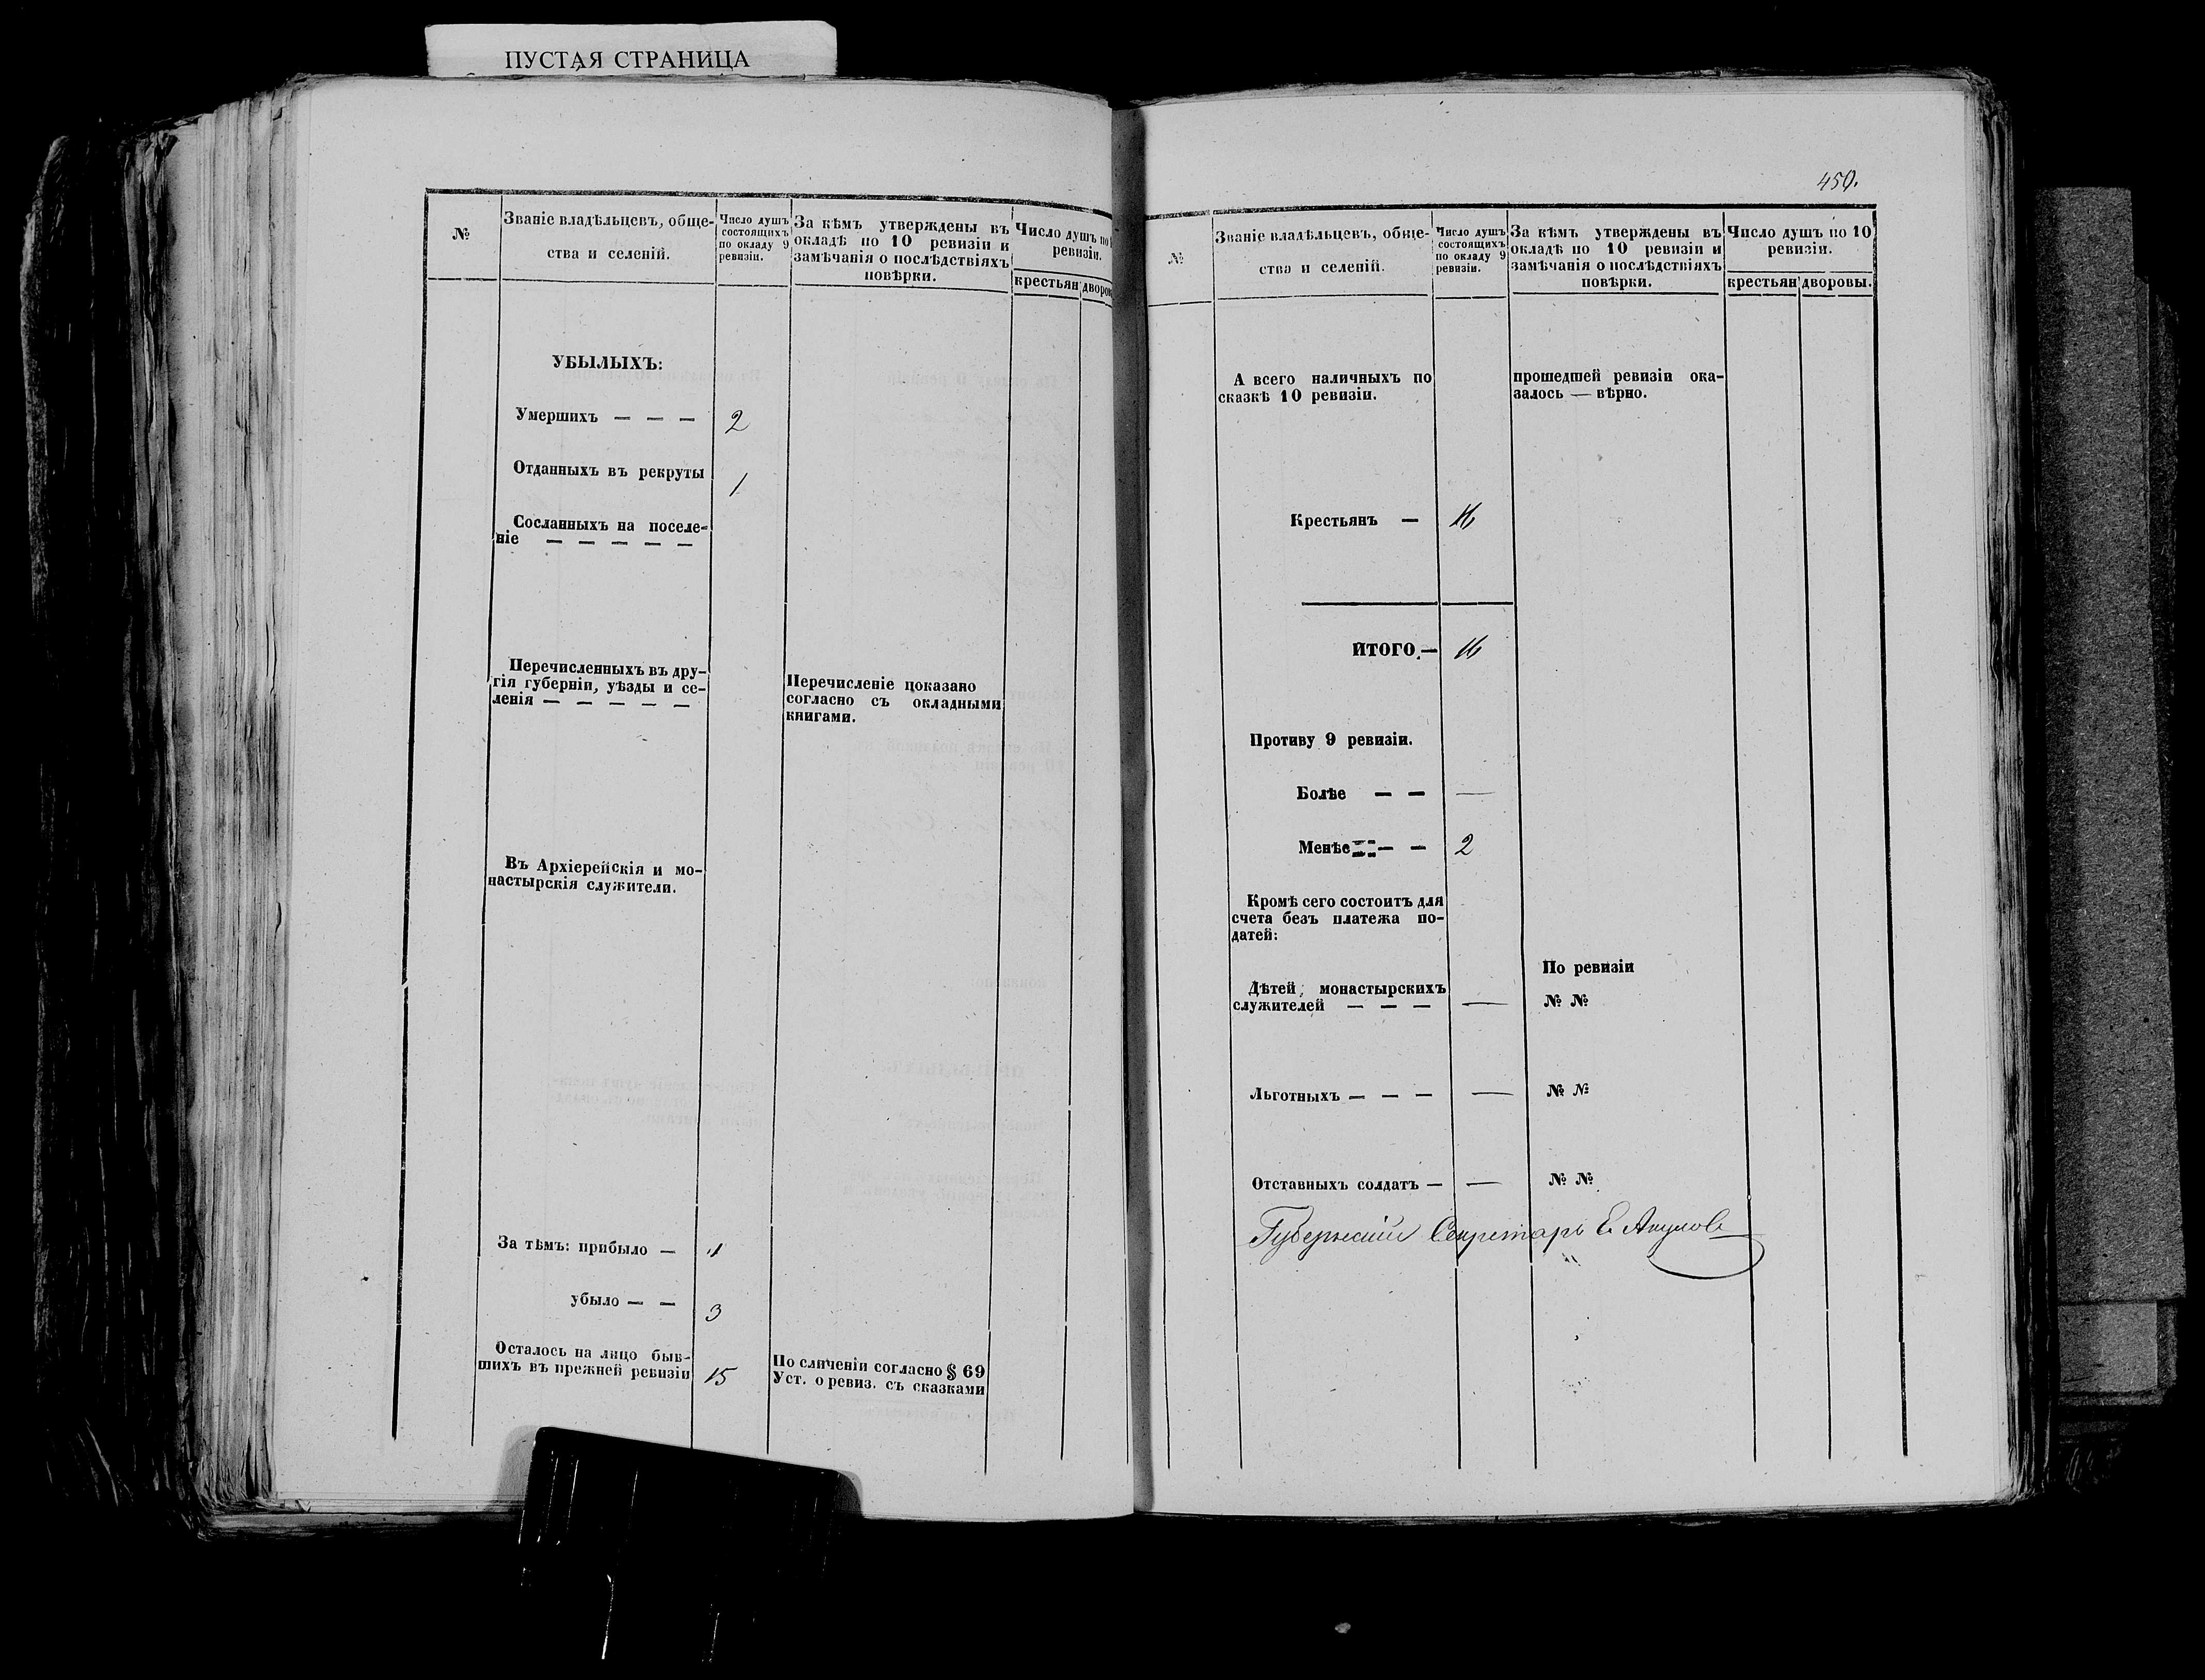 ПУСТАЯ СТРАНИЦА
№
Званіе владѣльцевъ, обще-
ства и селеній.
Число душъ
состоящихъ
по окладу 9
ревизіи.
За кѣмъ утверждены въ
окладѣ по 10 ревизіи и
замѣчанія о послѣдствіяхъ
повѣрки.
Число душъ по
ревизіи.
крестьян
дворов
УБЫЛЫХЪ:
Умершихъ — — — 2
Отданныхъ въ рекруты 1
Сосланныхъ на поселе-
ніе — — — — —
Перечисленныхъ въ дру-
гія губерніи, уѣзды и се-
ленія — — — — —
Перечисленіе показано
согласно съ окладными
книгами.
Въ Архіерейскія и мо-
настырскія служители.
За тѣмъ: прибыло — 1
убыло — — 3
Осталось на лицо быв-
шихъ въ прежней ревизіи 15
По сличеніи согласно § 69
Уст. о ревиз. съ сказками
450.
№
Званіе владѣльцевъ, обще-
ства и селеній.
Число душъ
состоящихъ
по окладу 9
ревизіи.
За кѣмъ утверждены въ
окладѣ по 10 ревизіи и
замѣчанія о послѣдствіяхъ
повѣрки.
Число душъ по 10
ревизіи.
крестьян
дворовы.
А всего наличныхъ по
сказкѣ 10 ревизіи.
прошедшей ревизіи ока-
залось — вѣрно.
Крестьянъ — 16
ИТОГО.— 16
Противу 9 ревизіи.
Болѣе — — —
Менѣе — — 2
Кромѣ сего состоитъ для
счета безъ платежа по-
датей:
По ревизіи
Дѣтей монастырскихъ
служителей — — — — № №
Льготныхъ — — — — № №
Отставныхъ солдатъ — — № №
Губернскій Секретарь Е Акуловъ